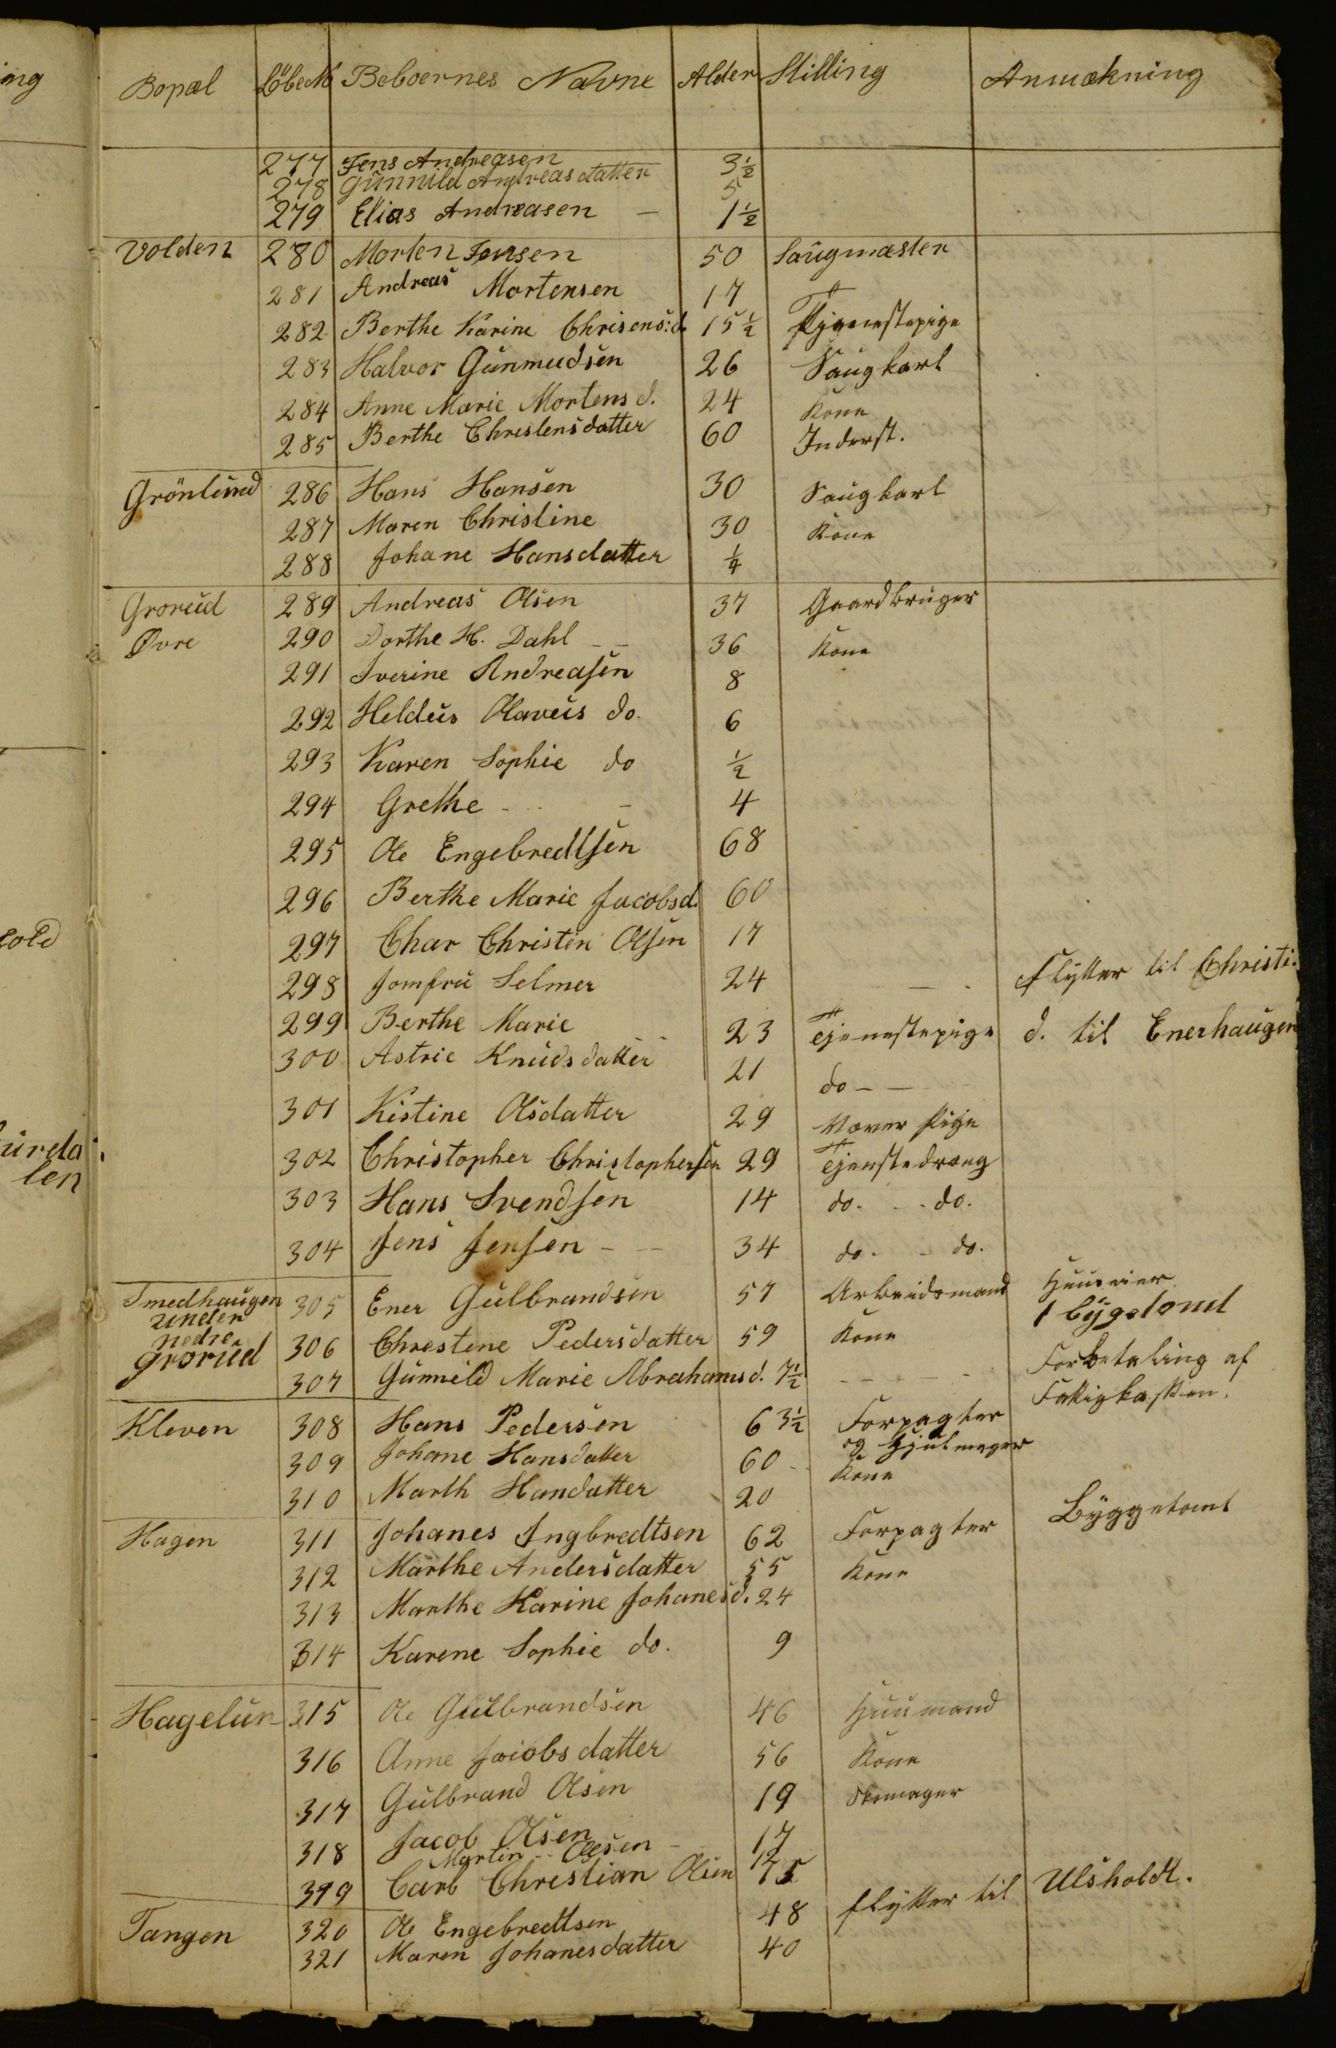 Bopæl Löbe№ Beboernes Navne Alder Stilling Anmækning
277 Jens Andreasen 3½
278 Gunnild Andreasdatter 5
279 Elias Andreasen — 1½
Volden 280 Morten Jensen 50 Saugmæster
281 Andreas Mortensen 17
282 Berthe Karine Chrisens:d 15½ Tjenestepige
283 Halvor Gunmudsen 26 Saugkarl
284 Anne Marie Mortens d. 24 Kone
285 Berthe Chrestensdatter 60 Inderst.
Grönlund 286 Hans Hansen 30 Saugkarl
287 Maren Christine 30 Kone
288 Johane Hansdatter ¼
Grorud 289 Andreas Olsen 37 Gaardbruger
Øvre 290 Dorthe H. Dahl — 36 Kone
291 Iverine Andreasen 8
292 Heldus Olaveus do. 6
293 Karen Sophie do ½
294 Grethe - - 4
295 Ole Engebredtsen 68
296 Berthe Marie Jacobsd. 60
297 Char Christen Olsen 17
298 Jomfru Selmer 24 — . flytter til Christi.
299 Berthe Marie 23 Tjenestepige d. til Enerhaugen
300 Astrie Knudsdatter 21 do — —
301 Kistine Olsdatter 29 Væver Pige
302 Christopher Christophersen 29 Tjenstedræng
303 Hans Svendsen 14 do. - - do.
304 Jens Jensen - - 34 do. - do.
Smedhaugen 305 Ener Gulbrandsen 57 Arbeidsmand Huuseier
under 1 bÿgetomt
nedre 306 Chrestene Pedersdatter 59 Kone
Grorud 307 Gunnild Marie Abrahamsd. 7½ - - - - Forbetaling af
Fattigkassen.
Kleven 308 Hans Pedersen 63½ Forpagter
og Hjulmager
309 Johane Hansdatter 60 - Kone
310 Marth Handatter 20
Hagen 311 Johanes Ingbredtsen 62 Forpagter Bÿggetomt
312 Marthe Andersdatter 55 Kone
313 Marthe Karine Johanesd. 24
314 Karene Sophie do. 9
Hagelun 315 Ole Gulbrandsen 46 Huumand
316 Anne Jacobsdatter 56 Kone
317 Gulbrand Olsen 19 Skomager
318 Jacob Olsen 17
Martin - Olsen - 12
319 Carl Christian Olsen 15
Tangen 320 Ole Engebredtsen 48 flytter til Ulsholdt.
321 Maren Johanesdatter 40
ing
told
urda
len